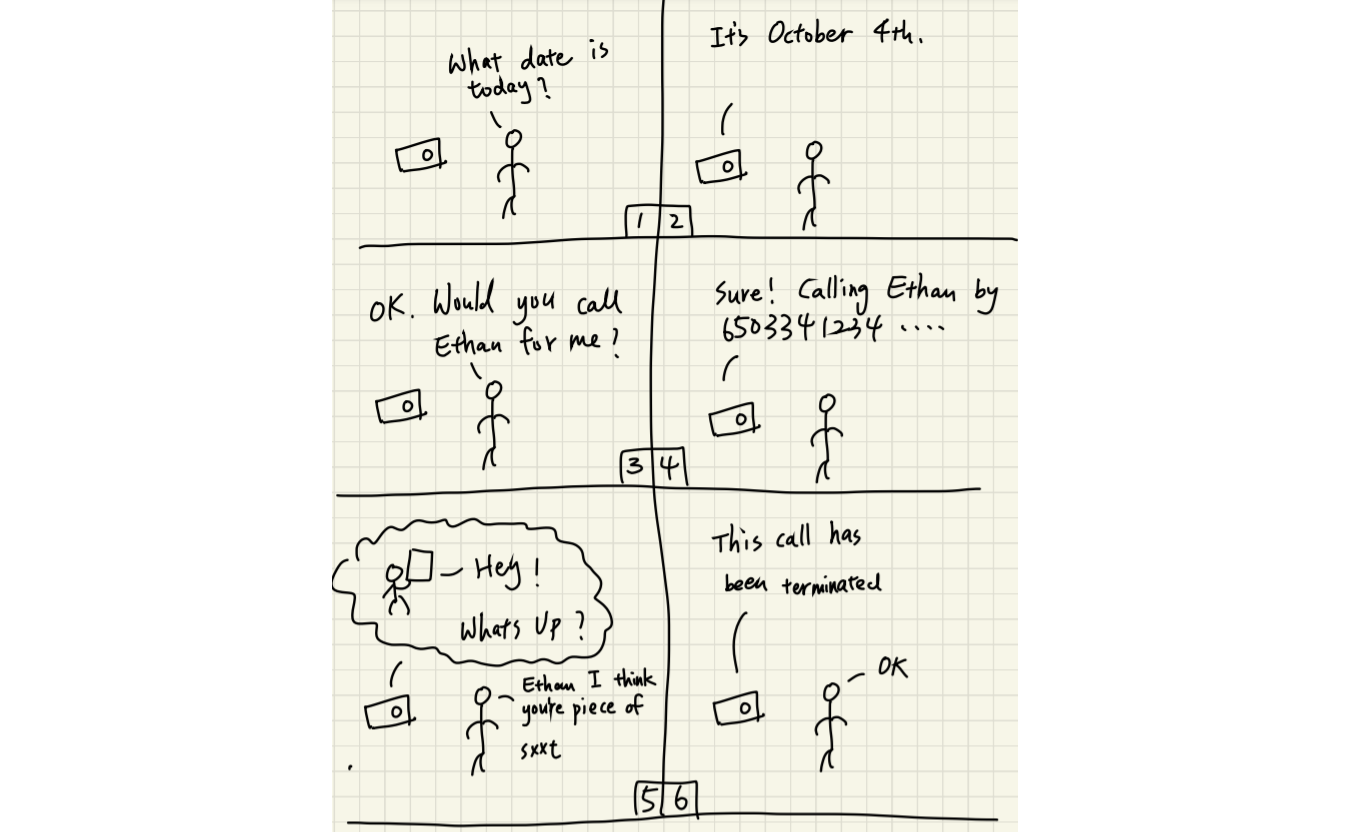 What date is
today?
It's October 4th.
1
2
OK. Would you call
Ethan for me?
Sure! Calling Ethan by
6503341234 ....
3
4
Hey!
Whats Up?
Ethan I think
you're piece of
sxxt
This call has
been terminated
OK
5
6